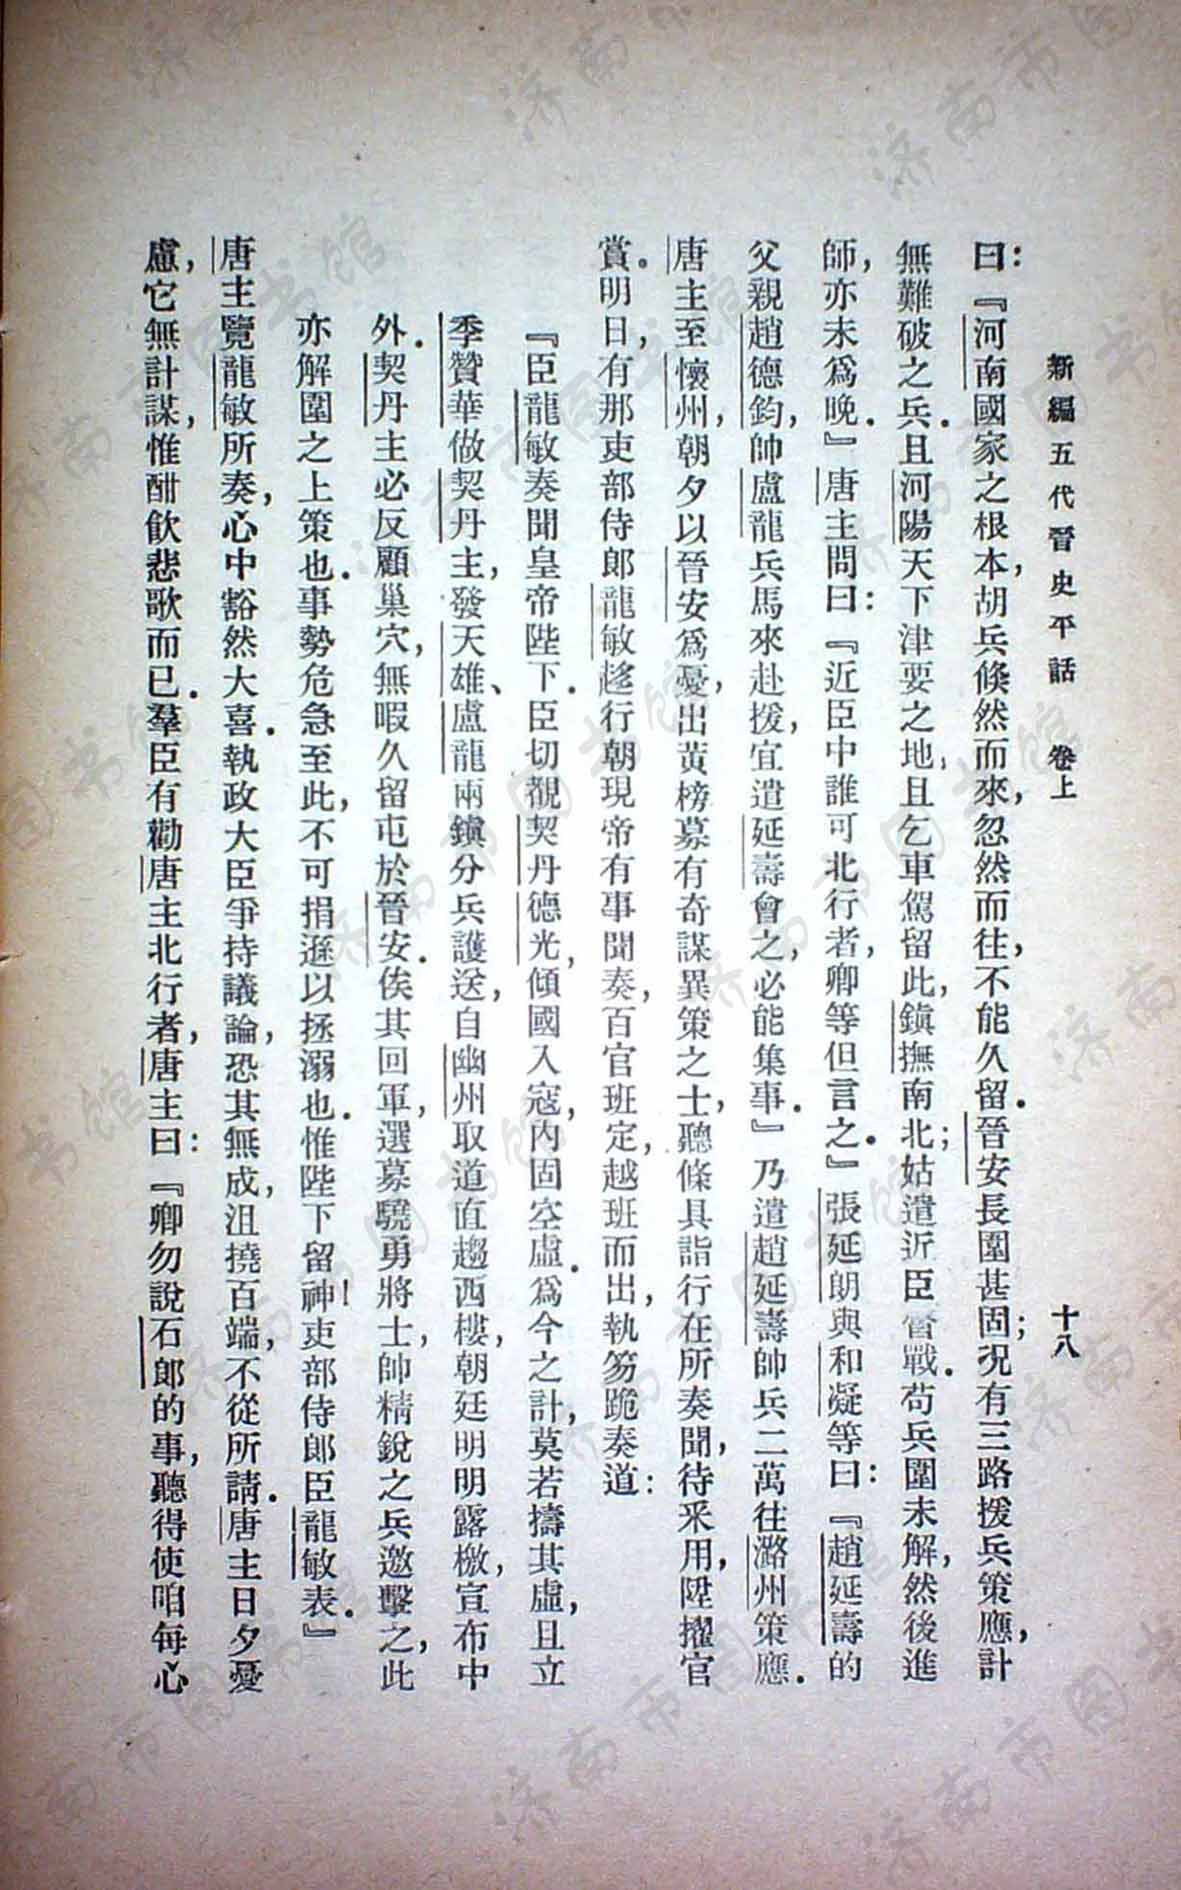 新編五代晉史平話　卷上　十八
曰：『河南國家之根本，胡兵倐然而來，忽然而往，不能久留．晉安長圍甚固；况有三路援兵策應，計
無難破之兵．且河陽天下津要之地，且乞車駕留此，鎭撫南北；姑遣近臣督戰．苟兵圍未解，然後進
師，亦未爲晚．』唐主問曰：『近臣中誰可北行者，卿等但言之．』張延朗與和凝等曰：『趙延壽的
父親趙德鈞，帥盧龍兵馬來赴援，宜遣延壽會之，必能集事．』乃遣趙延壽帥兵二萬往潞州策應．
唐主至懷州，朝夕以晉安爲憂，出黃榜募有奇謀異策之士，聽條具詣行在所奏聞，待采用，陞擢官
賞．明日，有那吏部侍郎龍敏趍行朝現帝有事聞奏，百官班定，越班而出，執笏跪奏道：
『臣龍敏奏聞皇帝陛下．臣切覩契丹德光，傾國入寇，內固空虛．爲今之計，莫若擣其虛，且立
季贊華做契丹主，發天雄、盧龍兩鎭分兵護送，自幽州取道直趨西樓，朝廷明明露檄，宣布中
外．契丹主必反顧巢穴，無暇久留屯於晉安．俟其回軍，選募驍勇將士，帥精銳之兵邀擊之，此
亦解圍之上策也．事勢危急至此，不可捐遜以拯溺也．惟陛下留神！吏部侍郎臣龍敏表．』
唐主覽龍敏所奏，心中豁然大喜．執政大臣爭持議論，恐其無成，沮撓百端，不從所請．唐主日夕憂
慮，它無計謀，惟酣飲悲歌而已．羣臣有勸唐主北行者，唐主曰：『卿勿說石郎的事，聽得使咱每心
济南市图书馆